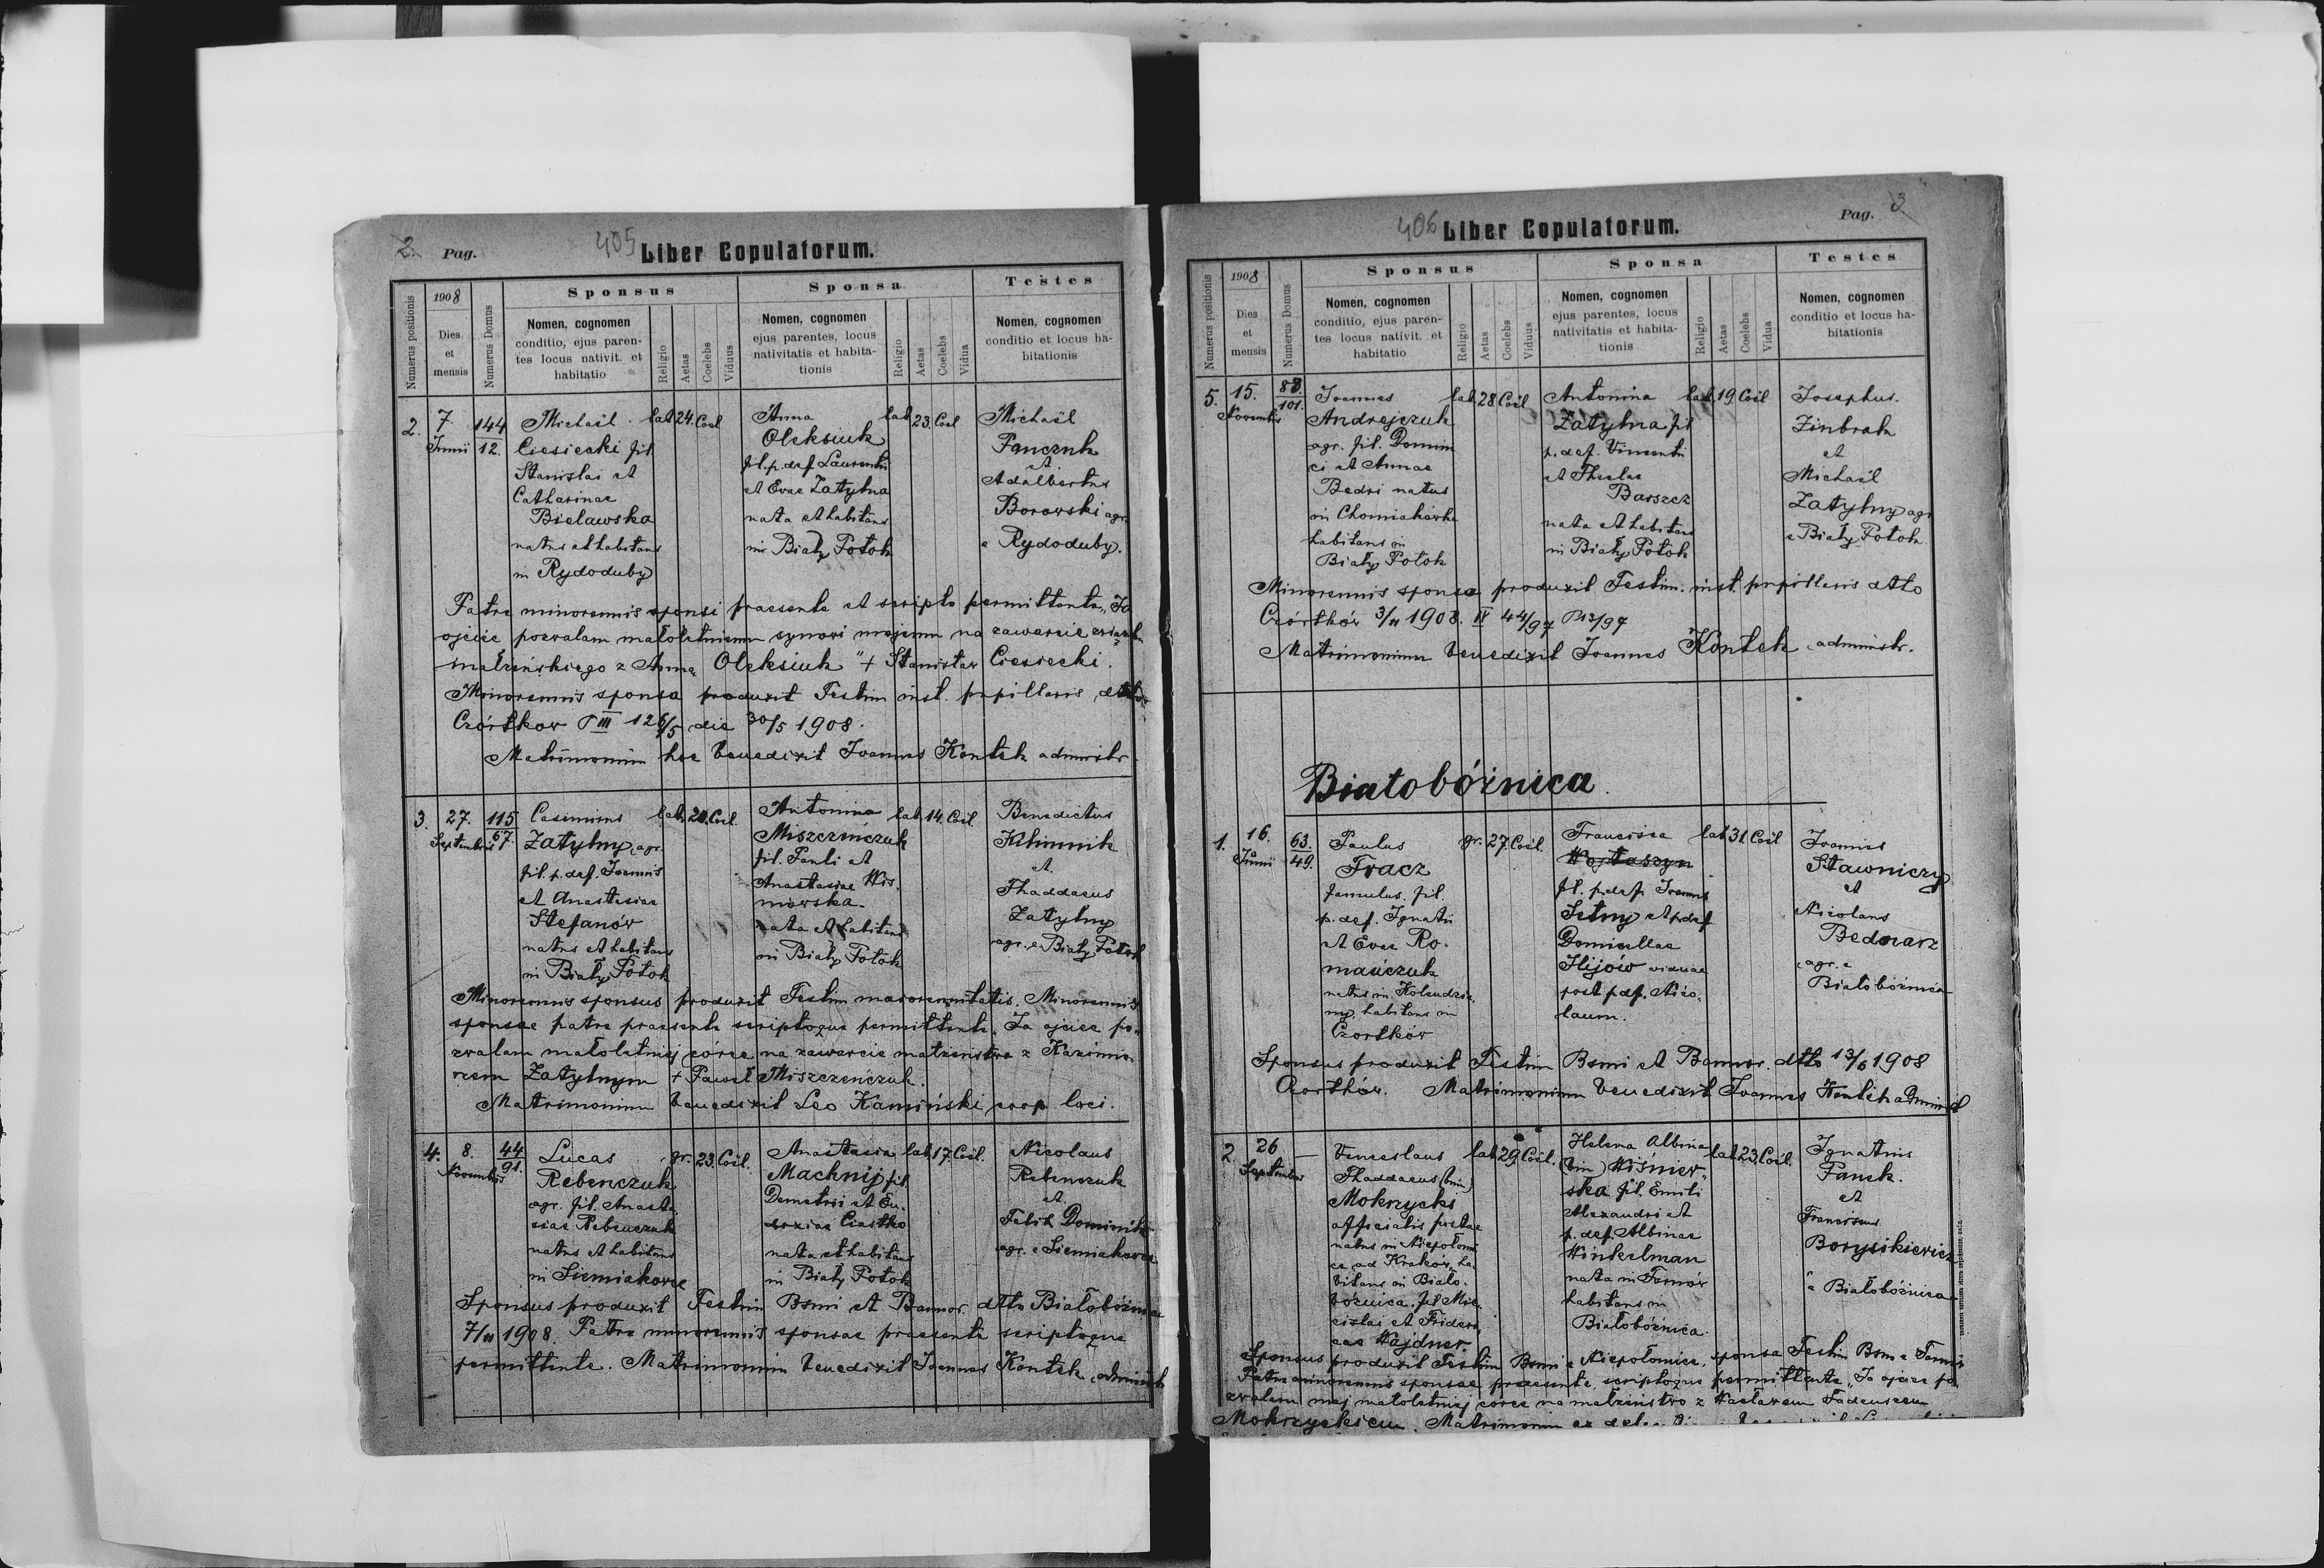 2. Pag. 405 Liber Copulatorum.
Numerus positionis
1908
Dies
et
mensis
Numerus Domus
Sponsus
Nomen, cognomen
conditio, ejus paren-
tes locus nativit. et
habitatio
Religio
Aetas
Coelebs
Viduus
Sponsa
Nomen, cognomen
ejus parentes, locus
nativitatis et habita-
tionis
Religio
Aetas
Coelebs
Vidua
Testes
Nomen, cognomen
conditio et locus ha-
bitationis
2.
7.
Junii
144
12.
Michaël
Ciesiecki fil.
Stanislai et
Catharinae
Bielawska
natus et habitans
in Rydoduby
lat. 24. Coel
Anna
Oleksiuk
fil. p. def. Laurentii
et Evae Zatylna
nata et habitans
in Biały Potok
lat. 23. Coel
Michaël
Panczuk
et
Adalbertus
Borowski agr.
e Rydoduby.
Patre minorennis sponsi praesente et scripto permittente „Ja
ojciec pozwalam małoletniemu synowi mojemu na zawarcie związk.
małżeńskiego z Anną Oleksiuk" + Stanisław Ciesiecki.
Minorennis sponsa produxit Testim inst. pupillaris dtto
Czortkow P III 126/5 die 30/5 1908.
Matrimonium hoc benedixit Joannes Kontek administr.
3.
27.
Septembris
115
67.
Casimirus
Zatylny, agr.
fil. p. def. Joannis
et Anastasiae
Stefanów
natus et habitans
in Biały Potok
lat. Coel.
Antonina
Miszczeńczuk
fil. Pauli et
Anastasiae Wis-
niowska.
nata et habitans
in Biały Potok
lat. 14. Coel.
Benedictus
Klimnik
et
Thaddaeus
Zatylny
agr. e Biały Potok
Minorennis sponsus produxit Testim maiorennitatis. Minorennis
sponsae patre praesente scriptoque permittente „Ja ojciec po-
zwalam małoletniej córce na zawarcie małżeństwa z Kazimie-
rzem Zatylnym + Paweł Miszczeńczuk.
Matrimonium benedixit Leo Kamiński coop. loci.
4.
8.
Novembris
44
91.
Lucas
Rebenczuk
agr. fil. Anasta-
siae Rebenczuk
natus et habitans
in Siemiakowce
gr. 23. Coel.
Anastasia
Machnij fil.
Demetrii et Eu-
Ciastko
nata et habitans
in Biały Potok
lat. 17. Coel.
Nicolaus
Rebenczuk
et
Felix Dominik
agr. e Siemiakowce
Sponsus produxit Testim Bsmi et Bannor. dtto Białobóżnica
7/11 1908. Patre minorennis sponsae praesente scriptoque
permittente. Matrimonium benedixit Joannes Kontek, administr
406 Liber Copulatorum. Pag. 3
Numerus positionis
1908
Dies
et
mensis
Numerus Domus
Sponsus
Nomen, cognomen
conditio, ejus paren-
tes locus nativit. et
habitatio
Religio
Aetas
Coelebs
Viduus
Sponsa
Nomen, cognomen
ejus parentes, locus
nativitatis et habita-
tionis
Religio
Aetas
Coelebs
Vidua
Testes
Nomen, cognomen
conditio et locus ha-
bitationis
5.
15.
Novembris
88
101.
Joannes
Andrejczuk
agr. fil. Domini
ci et Annae
Bedri natus
in Chomiakówka
habitans in
Biały Potok
lat. 28. Coel
Antonina
Zatylna fil
p. def. Vincentii
et Theclae
Barszcz
nata et habitans
in Biały Potok
lat. 19. Coel
Josephus.
Zinbrak
et
Michaël
Zatylny agr
e Biały Potok
Minorennis sponsa produxit Testim. inst. pupillaris dtto
Czortków 3/11 1908. IV 44/97 P13/97
Matrimonium benedixit Joannes Kontek, administr.
Białobóżnica.
1.
16.
Junii
63.
49.
Paulus
Tracz
famulus, fil.
p. def. Ignatii
et Evae Ro-
mańczuk
natus in Kolendzia-
ny, habitans in
Czortków
gr. 27. Coel.
Francisca
Wojtaszyn
fil. p. def. Joannis
Setny et p. def
Domicellae
Ilijów viduae
post p. def. Nico-
laum.
lat. 31. Coel
Joannes
Stawniczy
et
Nicolaus
Bednarz
agr. e
Białobóżnica
Sponsus produxit Testim Bsmi et Bannor. dtto 13/6 1908
Czortków. Matrimonium benedixit Joannes Kontek administ
2.
26
Septembris
—
Venceslaus
Thaddaeus (bin)
Mokrzycki
officialis postae
natus in Niepołomi-
ce, ad Kraków, ha-
bitans in Biało-
bóżnica. fil. Mie-
cislai et Frideri-
cae Wajdner.
lat. 29. Coel.
Helena Albina
(bin) Wiśniew-
ska fil. Emili
Alexandri et
p. def. Albinae
Winkelman
nata in Tarnów
habitans in
Białobóżnica.
lat. 23. Coel.
Ignatius
Panek.
et
Franciscus
Borysikiewicz
e Białobóżnica
Sponsus produxit Testim Bsmi e Niepołomice, sponsa Testim Bsm e Tarnów
Patre minorennis sponsae praesente, scriptoque permittente „Ja ojciec po
zwalam mej małoletniej córce na małżeństwo z Wacławem Tadeuszem
Mokrzyckiem. Matrimonium ex